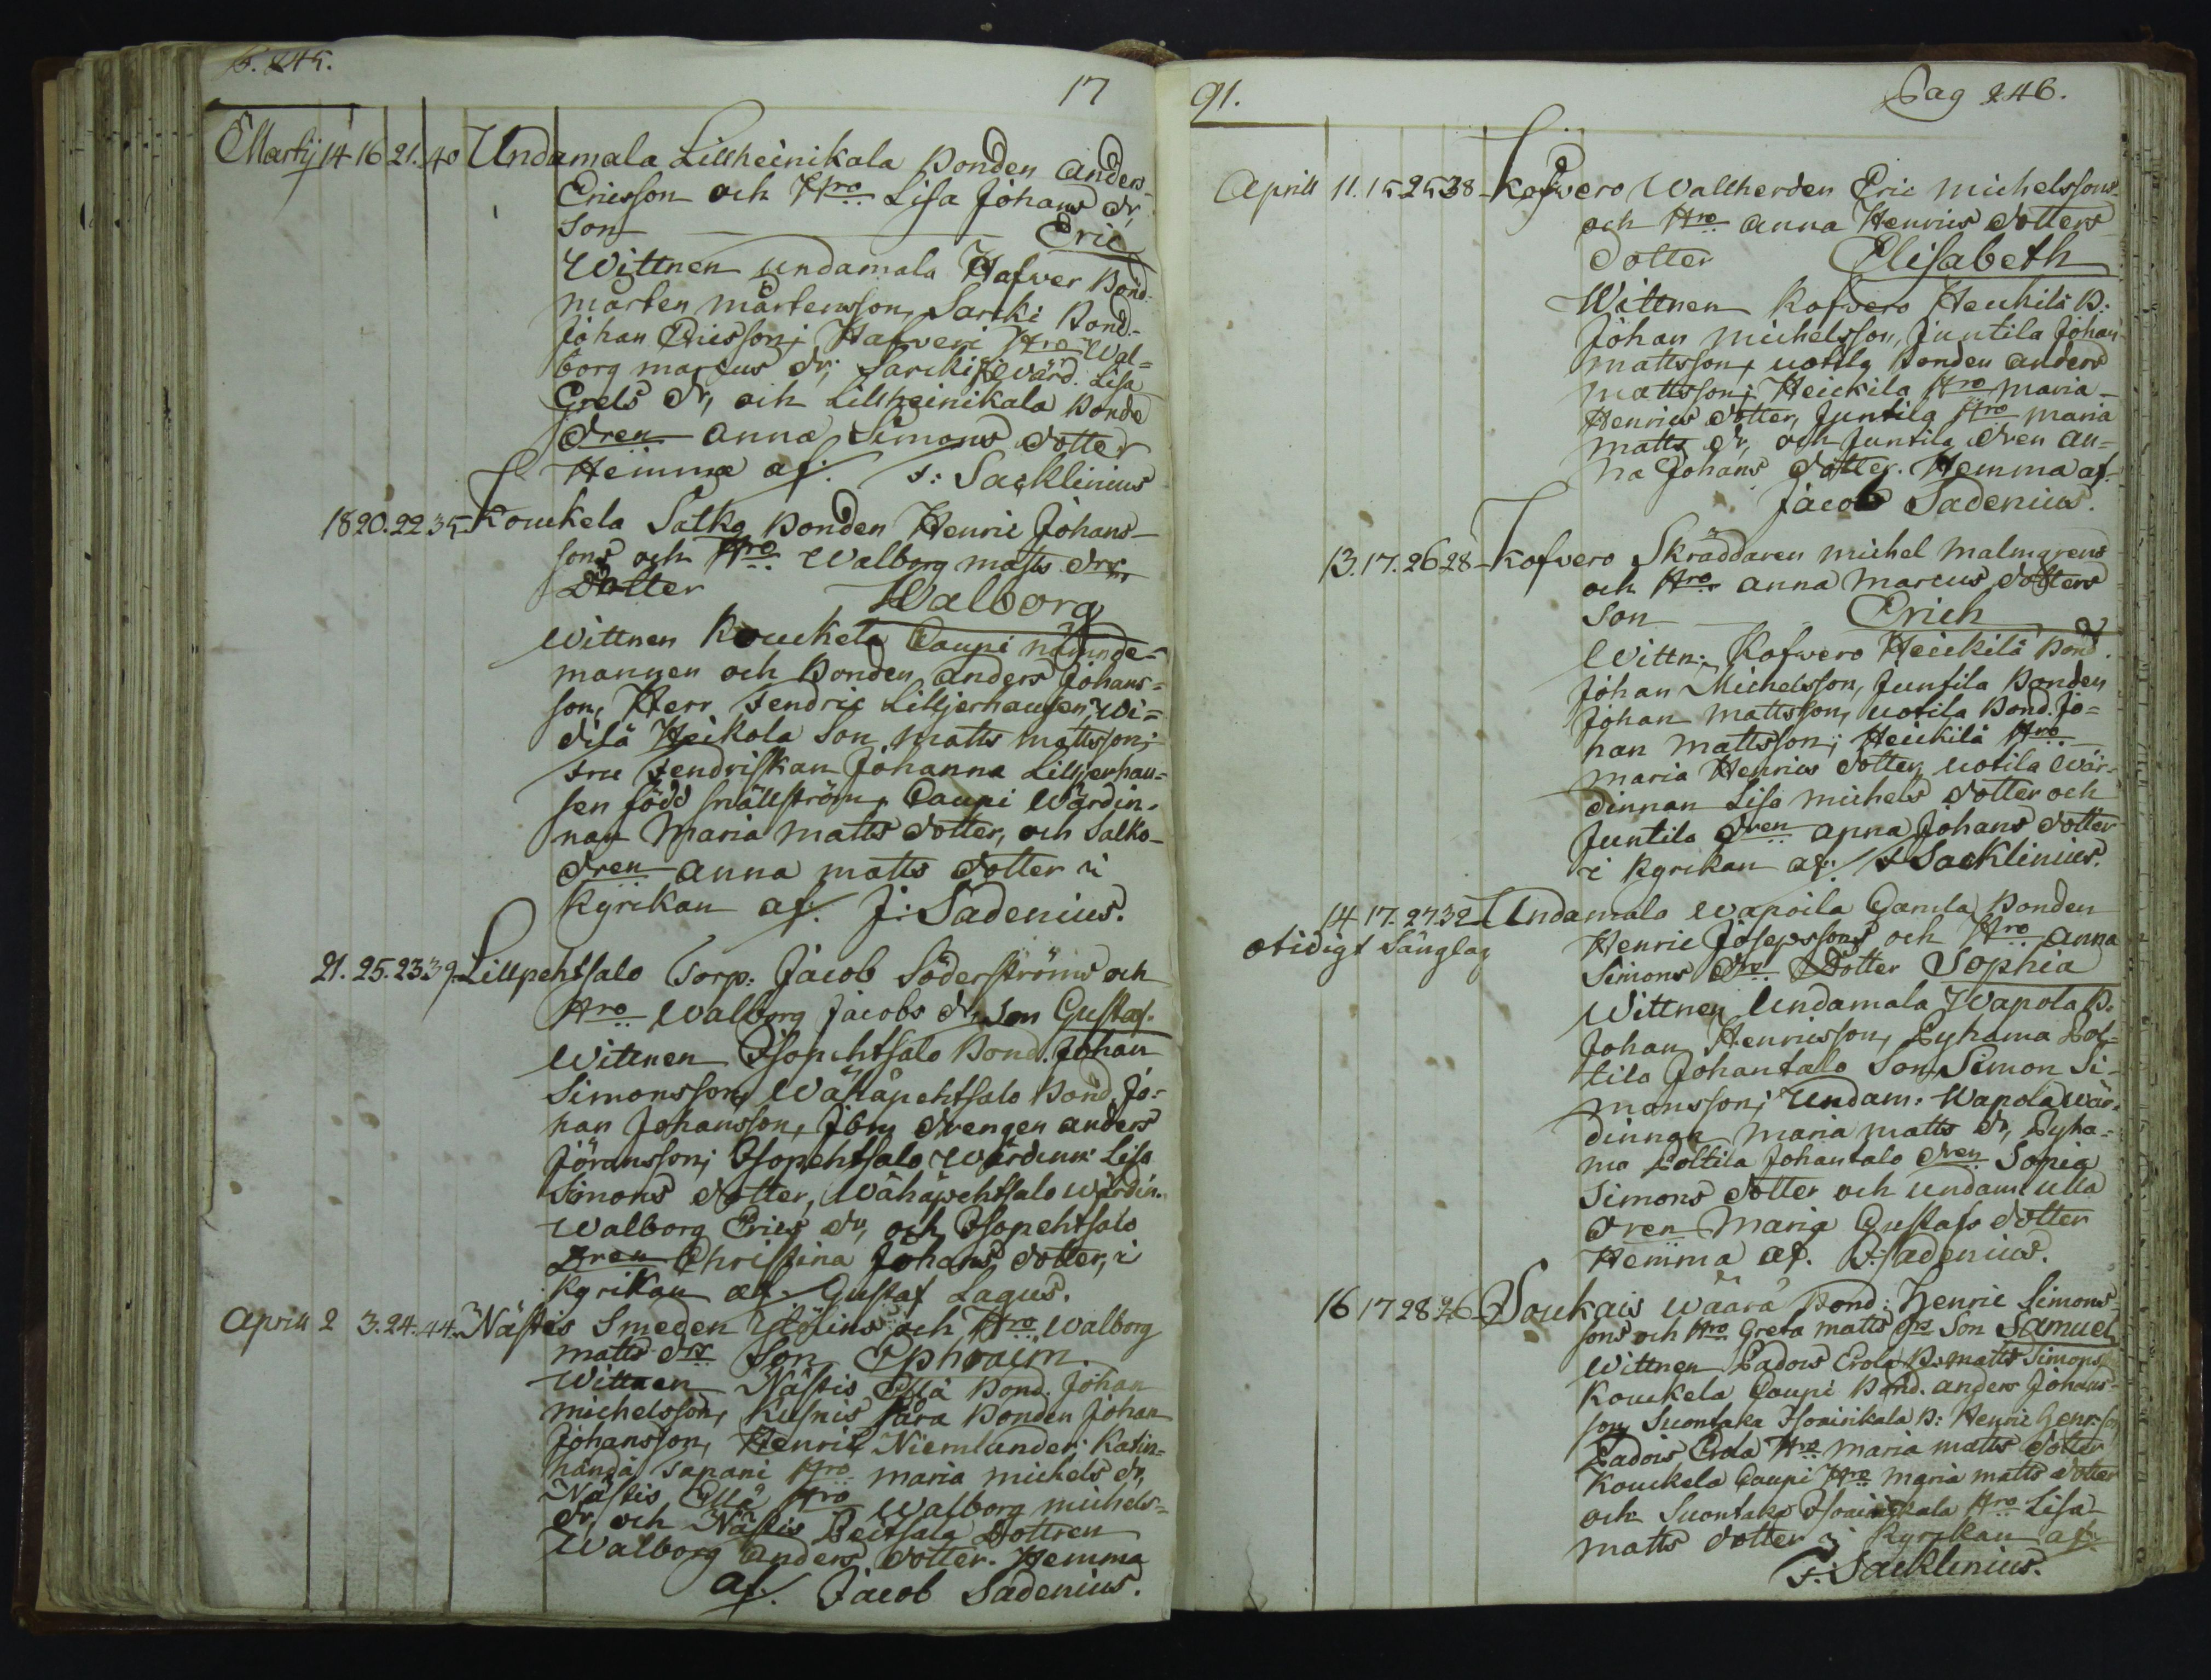 p. 245.
17
Martij 14 16 21. 40 Undamala Lillheinikala Bonden Anders
Ericsson och Hro Lisa Johans dr,
Son Eric
Wittnen Undamala Hafver Bond.
Mårten Mårtensson, Sarcki Bond.
Johan Ericsson; Hafveri Hro Wal=
borg Marcus dr; Sarcki Wärd. Lisa
Grels dr, och Lillheinikala Bonde
dren Anna Simons dotter
Hemma af. F: Sacklinius
18 20. 22 35. Kouckela Salko Bonden Henric Johans
sons och Hro Walborg Matts drs
Dotter Walborg
Wittnen Kouckela Caupi Nämnde=
mannen och Bonden Anders Johans=
son, Herr Fendric Lilljerhausen, Wi=
dilä Heikola Son Matts Mattsson;
Fru Fendriskan Johanna Lilljerhau=
sen född Snällström, Caupi Wärdin.
nan Maria Matts dotter, och Salko
dren Anna Matts dotter i
Kyrckan af. J: Sadenius.
21. 25. 23 39. Lillpehtsalo Torp: Jacob Söderströms och
Hro Walborg Jacobs dr, Son Gustaf.
Wittnen Isopehtsalo Bond. Johan
Simonsson, Wähäpehtsalo Bond. Jo=
han Johansson, Ibm drengen Anders
Jöransson; Isopehtsalo Wärdinn: Lisa
Simons dotter, Wähäpehtsalo Wärdin.
Walborg Erics dr, och Isopehtsalo
Dren Christina Johans dotter, i
Kyrikan af. Gustaf Lagus.
Aprill 2 3. 24. 44. Nästis Smeden och Hro Walborg
Matts drs Son Ephraim.
Wittnen Nästis Ellä Bond. Johan
Michelsson, Kusnis Pära Bonden Johan
Johansson, Henric Niemlander; Katin=
händä Tapani Hro Maria Michels dr,
Nästis Ellä Hro Walborg Michels=
dr, och Nästis Beitsala Dottren
Walborg Anders dotter. Hemma
af. Jacob Sadenius.
91. Pag 246.
Aprill 11. 15 25 38 Kofvero Wallherden Eric Michelssons
och Hro Anna Henrics dotters
Dotter Elisabeth
Wittnen Kofvero Heickilä B:
Johan Michelsson, Juntila Johan
Mattsson, Uotila Bonden Anders
Mattsson; Heickila Hro Maria
Henrics dotter, Juntila Hro Maria
Matts dr, och Juntila dren An=
na Johans dotter. Hemma af.
Jacob Sadenius.
13. 17. 26 28 Kofvero Skräddaren Michel Malmgrens
och Hro Anna Marcus dotters
Son Erich
Wittn: Kofvero Heickilä Bond.
Johan Michelsson, Juntila Bonden
Johan Mattsson, Uotila Bond. Jo=
han Mattsson; Heickilä Hro
Maria Henrics dotter, Uotila Wär=
dinnan Lisa Michels dotter och
Juntila dren Anna Johans dotter
i Kyrckan af. F Sacklinius.
14 17. 27 32 Undamalo Wapoila Gamla Bonden
otidigt Sänglag Henric Josepssons och Hro Anna
Simons drs Dotter Sophia
Wittnen Undamala Wapola B.
Johan Henricsson, Pyhama Pol=
tila Johantalo Son Simon Si=
monsson; Undam. Wapola Wär=
dinnan Maria Matts dr, Pyha=
ma Poltila Johantalo dren Sopia
Simons dotter och Undam: Ulla
dren Maria Gustafs dotter
Hemma af. J: Sadenius.
16 17 28 26 Soukais Waara Bond: Henric Simons
sons och Hro Greta Matts drs Son Samuel
Wittnen Padois Erola B: Matts Simons
Kouckela Caupi Bond. Anders Johans=
son, Suontaka Isoainikala B: Henric Henr:son
Padois, Erola Hro Maria Matts dotter
Kouckela Caupi Hro Maria Matts dotter
och Suontaka Isoainikala Hro Lisa
Matts dotter i Kyrckan af
F. Sacklinius.